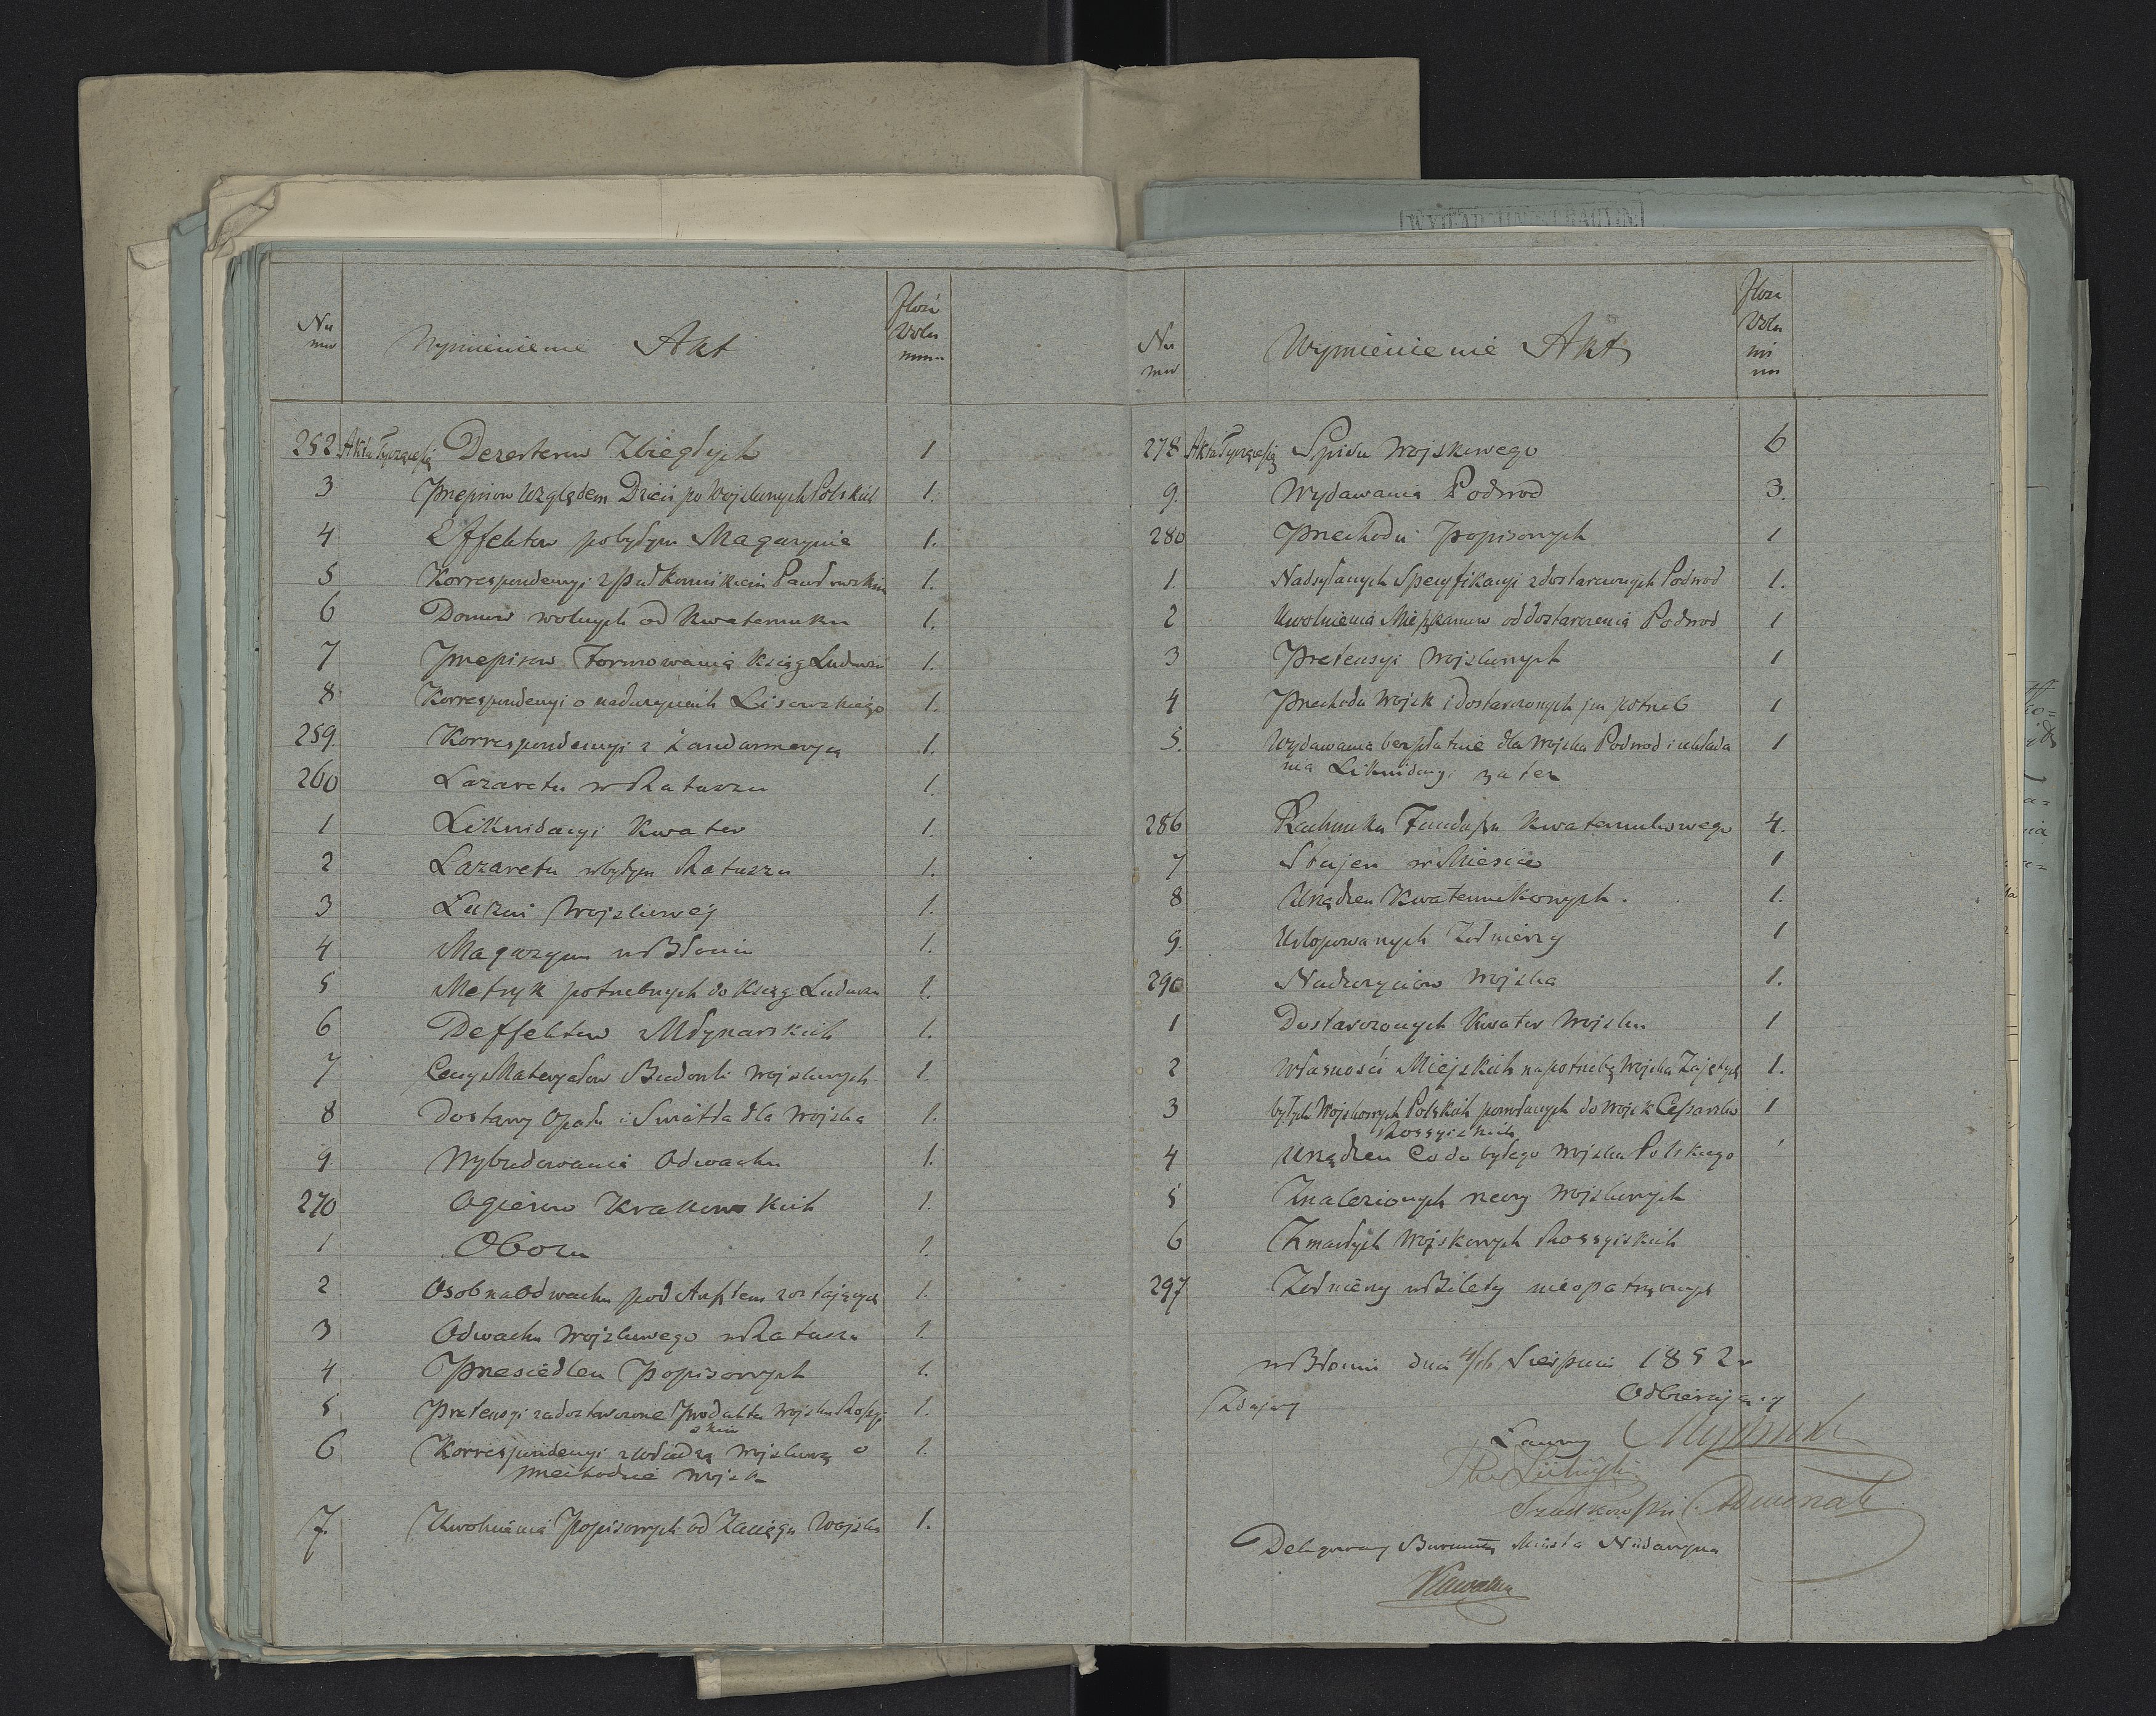 Nu
mer
Wymienienie Akt
Ilość
Wolu
minu
252 Akta Tyczące się Dezerterów Zbiegłych 1
3 Przepisow Względem Dzieci po Wojskowych Polskich 1.
4 Effektow pobyłym Magazynie 1.
5 Korrespondencyi z Pułkownikiem Pawłowskim 1.
6 Domow wolnych od Kwaterunku 1.
7 Przepisow Formowania Ksiąg Ludności 1.
8 Korrespondencyi o nadużyciach Lisowskiego 1.
259. Korrespondencyi z Żandarmeryą 1.
260 Lazaretu w Ratuszu 1.
1 Likwidacyi Kwater 1.
2 Lazaretu wbyłym Ratuszu 1.
3 Wojskowej 1.
4 Magazynu w Błoniu 1.
5 Metryk potrzebnych do Ksiąg Ludności 1.
6 Deffektow Młynarskich 1.
7 Ceny Materyałow Budowli Wojskowych 1.
8 Dostawy Opału i Swiatła dla Wojska 1.
9. Wybudowania Odwachu 1.
270 Ogierow Krakowskich 1.
1 Obozu 1.
2 Osob na Odwachu pod Aresztem zostających 1.
3 Odwachu Wojskowego w Ratuszu 1.
4 Przesiedlen Popisowych 1.
5 Pretensyi za dostawione Produkta Wojsku Rossyi
skim 1.
6 Korrespondencyi z Władzą Wojskową o 1.
przechodzie Wojsk
7. Uwolnienia Popisowych od Zaciągu Wojska 1.
Nu
mer
Wymienienie Akt
Ilosc
Wolu
mi
nu
278 Akta Tyczące się Spisu Wojskowego 6
9. Wydawania Podwod 3.
280 Przechodu Popisowych 1
1. Nadsyłanych Specyfikacyi z dostarczonych Podwod 1.
2 Uwolnienia Mieszkancow od dostarczenia Podwod 1
3 Pretensyi Wojskowych 1
4 Przechodu Wojsk i dostarczonych im potrzeb 1
5. Wydawania bezpłatnie dla Wojska Podwod i układa
nia Likwidacyi za też 1
286 Rachunku Funduszu Kwaterunkowego 4.
7 Stajen w Miescie 1
8 Urządzen Kwaterunkowych. 1.
9. Urlopowanych Żołnierzy 1
290 Nadużyciow Wojska 1.
1 Dostarczonych Kwater Wojsku 1
2 Własności Miejskich na potrzebę Wojska Zajętych 1.
3 byłych Wojskowych Polskich powołanych do Wojsk Cesarsko 1
Rossyiskich
4 Urządzen Co do byłego Wojska Polskiego 1
5 Znalezionych rzeczy Wojskowych
6 Zmarłych Wojskowych Rossyiskich
297 Żołnierzy w Bilety nieopatrzonych
w Błoniu dnia 4/16 Sierpnia 1852 r
Zdający Odbierający
Ławny
Szadkowski
Delegowany Burmistrz Miasta Nadarzyna